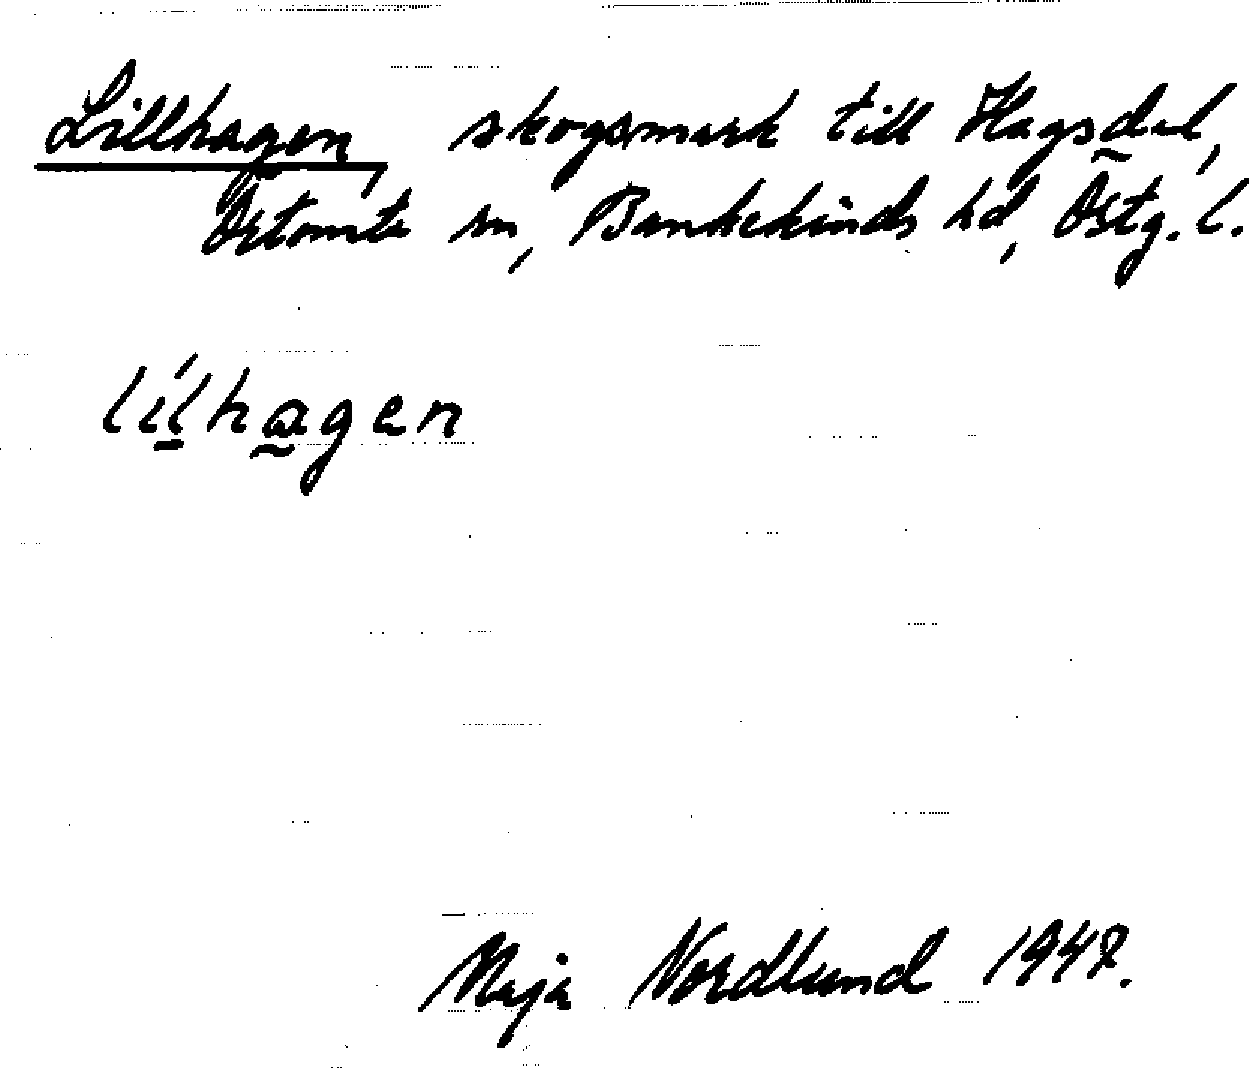 Lillhagen, skogsmark till Hagsdal,
Örtomta sn, Bankekinds hd, Östg. l.
lilhagen
Maja Nordlund 1947.